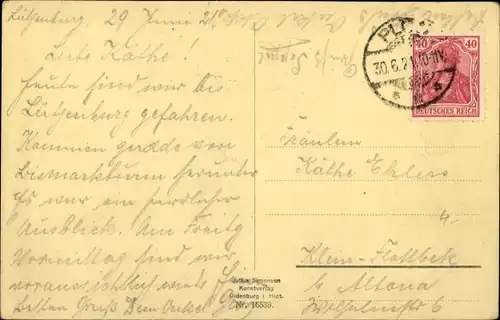 Lütjenburg 29 Juni 21.
Liebe Käthe!
heute sind wir bis
Lütjenburg gefahren.
Kommen gerade vom
Bismarckturm herunter
Es war ein herrlicher
Ausblick. Am Freitg
Vormittag sind wir
voraussichtlich
besten Gruß Dein Onkel
Gruß
PL
30.6.21.10-11V.
40 40
DEUTSCHES REICH
Fräulein
Käthe Ehlers
4.
Klein-Flottbek
b. Altona
Wilhelmstr 6
Julius Simonsen
Kunstverlag
Oldenburg i. Holst.
Nr. 16539.